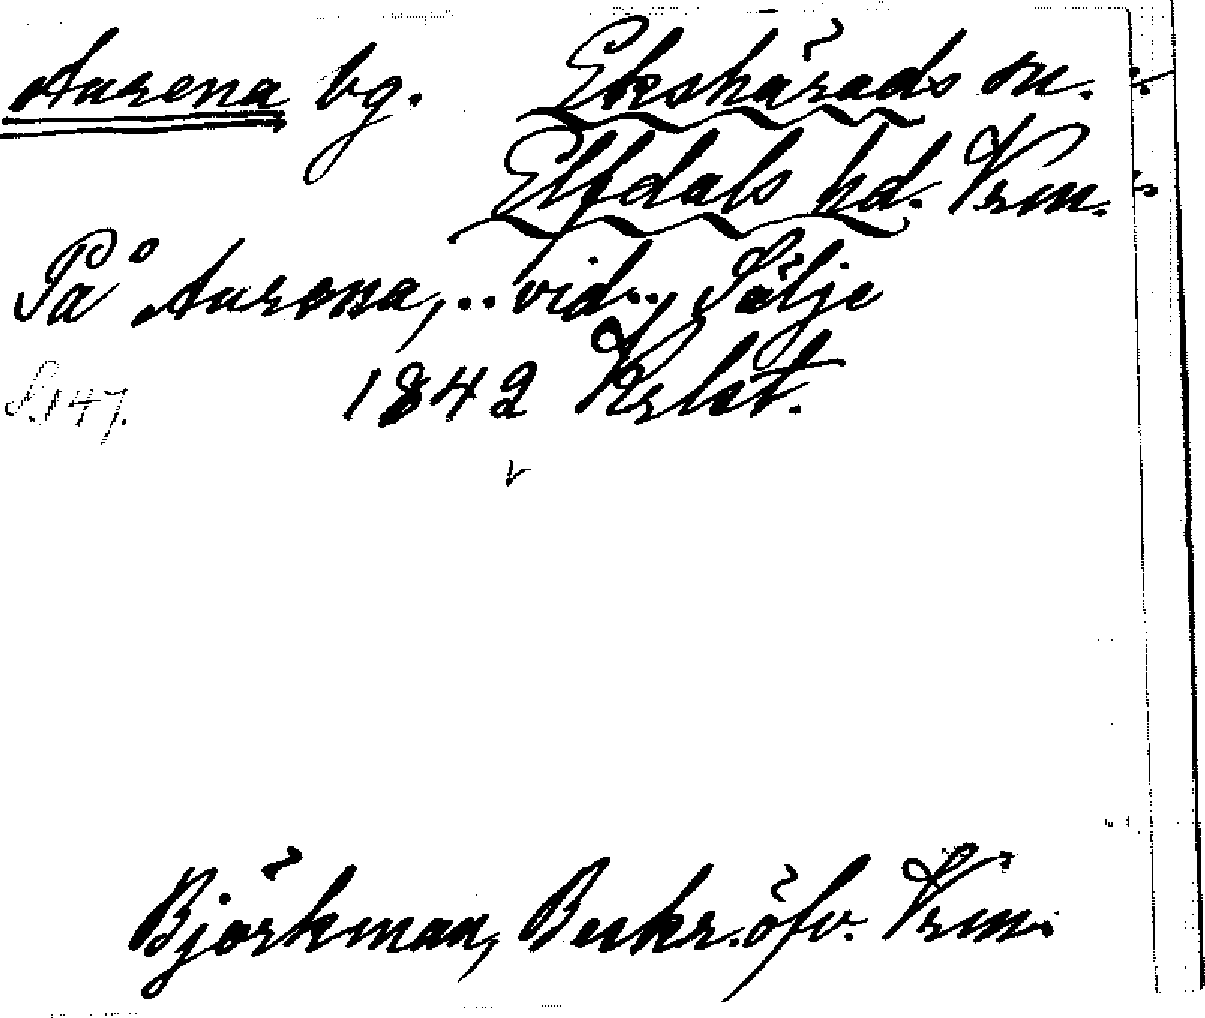 Aurena bg. Ekshärads sn.
Elfdals hd. Vrm.
På Aurena, .. vid .., Sälje
S. 147. 1842 Krlst.
Björkman, Beskr. öfv. Vrm.